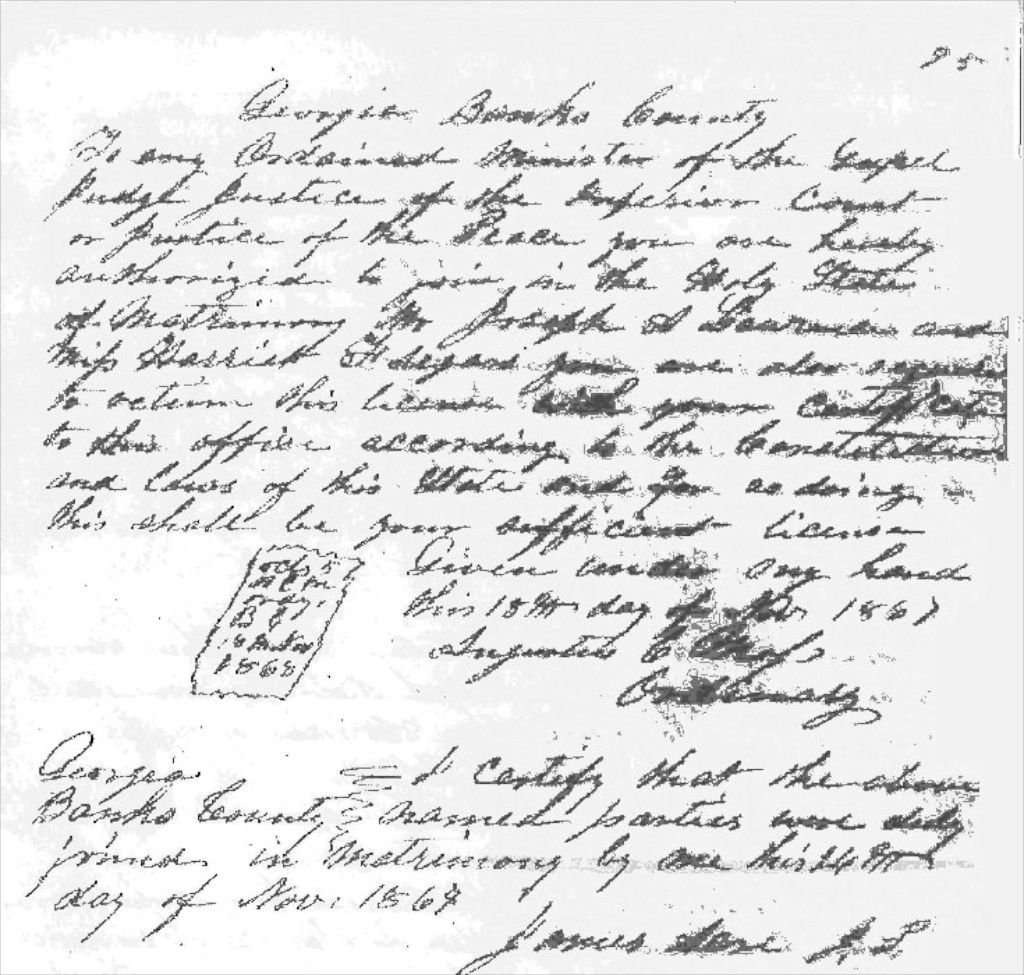 95
Georgia Banks County
To any Ordained Minister of the Gospel
Judge Justice of the Inferior Court
or Justice of the Peace you are hereby
authorized to join in the Holy State
of Matrimony Mr Joseph A and
Miss Harriet you are also
to return this license with your
to this office according to the Constitution
and laws of this State and for so doing
this shall be your sufficient license
Given under my hand
this 18th day of Nov 1867
C
Ordinary
1868
Georgia I certify that the above
Banks County named parties were duly
joined in Matrimony by me this 24th
day of Nov. 1867
James J.P.